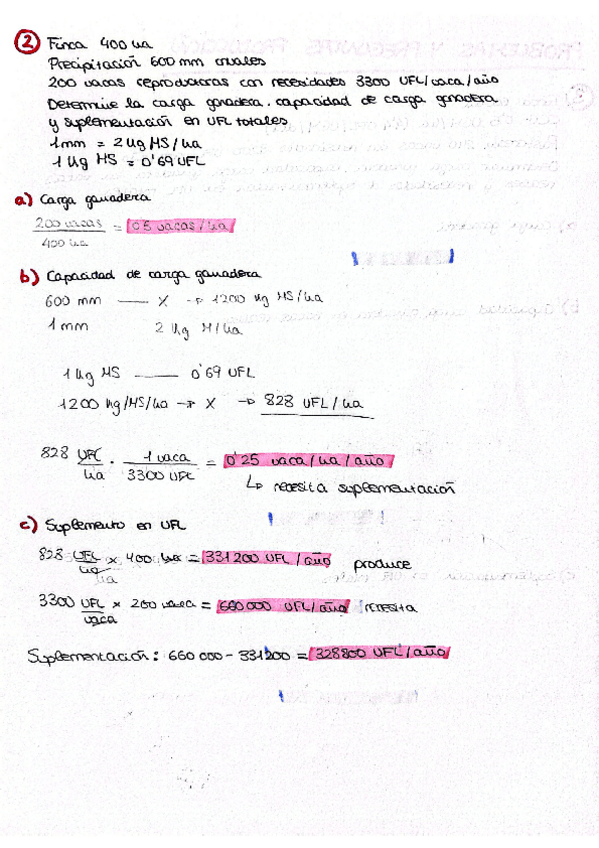 2 Finca 400 ha
Precipitación 600 mm anuales
200 vacas reproductoras con necesidades 3300 UFL/vaca/año
Determine la carga ganadera, capacidad de carga ganadera
y suplementación en UFL totales
1mm = 2 Kg MS/ha
1 Kg MS = 0'69 UFL
a) Carga ganadera
200 vacas / 400 ha = 0'5 vacas/ha
b) Capacidad de carga ganadera
600 mm —— X → 1200 Kg MS/ha
1 mm 2 Kg M/ha
1 Kg MS —— 0'69 UFL
1200 Kg/MS/ha → X → 828 UFL/ha
828 UFL/ha · 1 vaca/3300 UFL = 0'25 vaca/ha/año
↳ necesita suplementación
c) Suplemento en UFL
828 UFL/ha x 400 ha = 331200 UFL/año produce
3300 UFL/vaca x 200 vaca = 660000 UFL/año necesita
Suplementación: 660 000 - 331200 = 328800 UFL/año